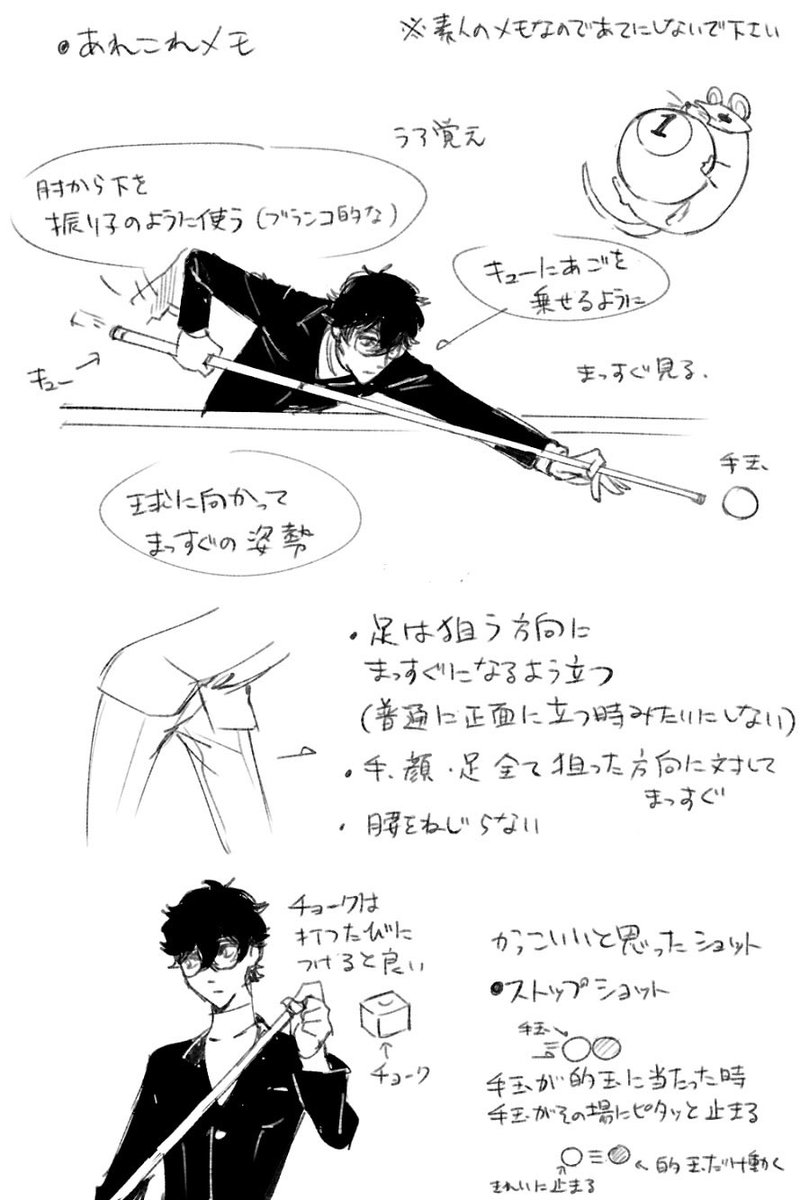 •あれこれメモ
※素人のメモなのであてにしないで下さい
うろ覚え
1
肘から下を
振り子のように使う(ブランコ的な)
キューにあごを
乗せるように
キュー
まっすぐ見る.
手玉
球に向かって
まっすぐの姿勢
・足は狙う方向に
まっすぐになるよう立つ
(普通に正面に立つ時みたいにしない)
・手、顔・足全て狙った方向に対して
まっすぐ
・腰をねじらない
チョークは
打つたびに
つけると良い
チョーク
かっこいいと思ったショット
•ストップショット
手玉
手玉が的玉に当たった時
手玉がその場にピタッと止まる
的玉だけ動く
きれいに止まる